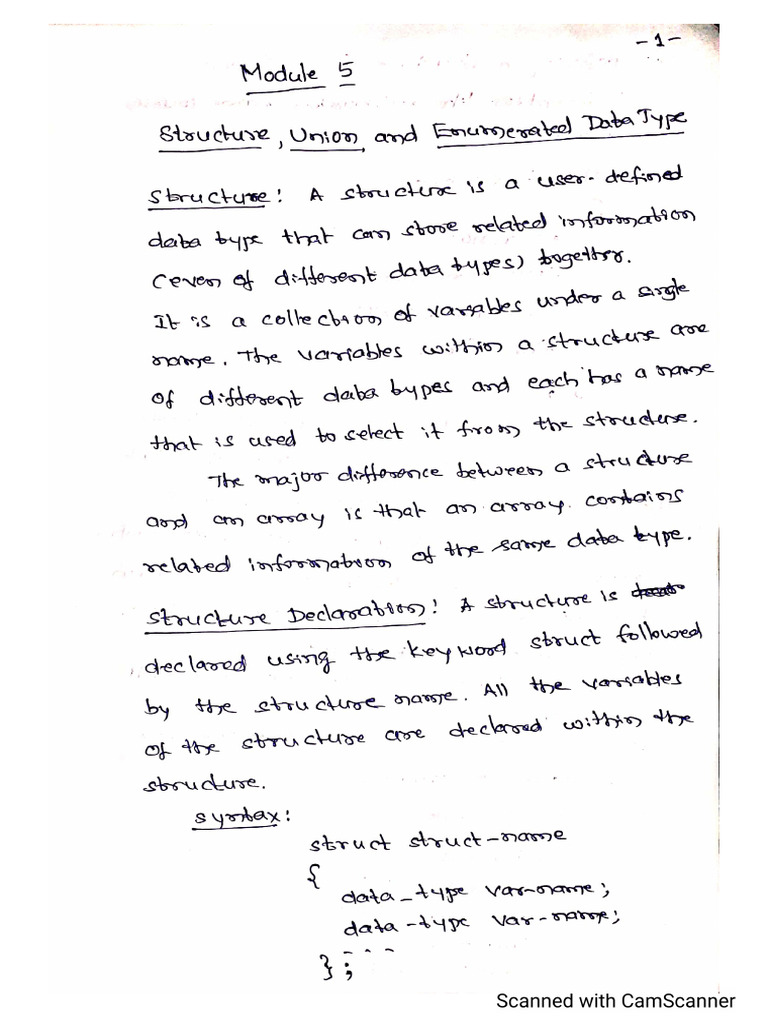 -1-
Module 5
Structure, Union, and Enumerated Data Type
Structure: A structure is a user-defined
data type that can store related information
(even of different data types) together.
It is a collection of variables under a single
name. The variables within a structure are
of different data types and each has a name
that is used to select it from the structure.
The major difference between a structure
and an array is that an array contains
related information of the same data type.
Structure Declaration: A structure is
declared using the keyword struct followed
by the structure name. All the variables
of the structure are declared within the
structure.
syntax:
struct struct-name
{
data_type var-name;
data-type var-name;
- - - -
};
Scanned with CamScanner